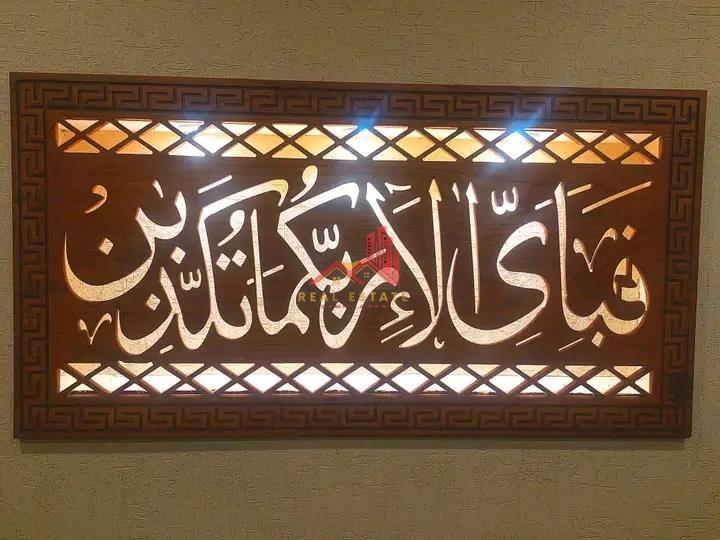 فَبِأَيِّ آلَاءِ رَبِّكُمَا تُكَذِّبَانِ
REAL ESTATE